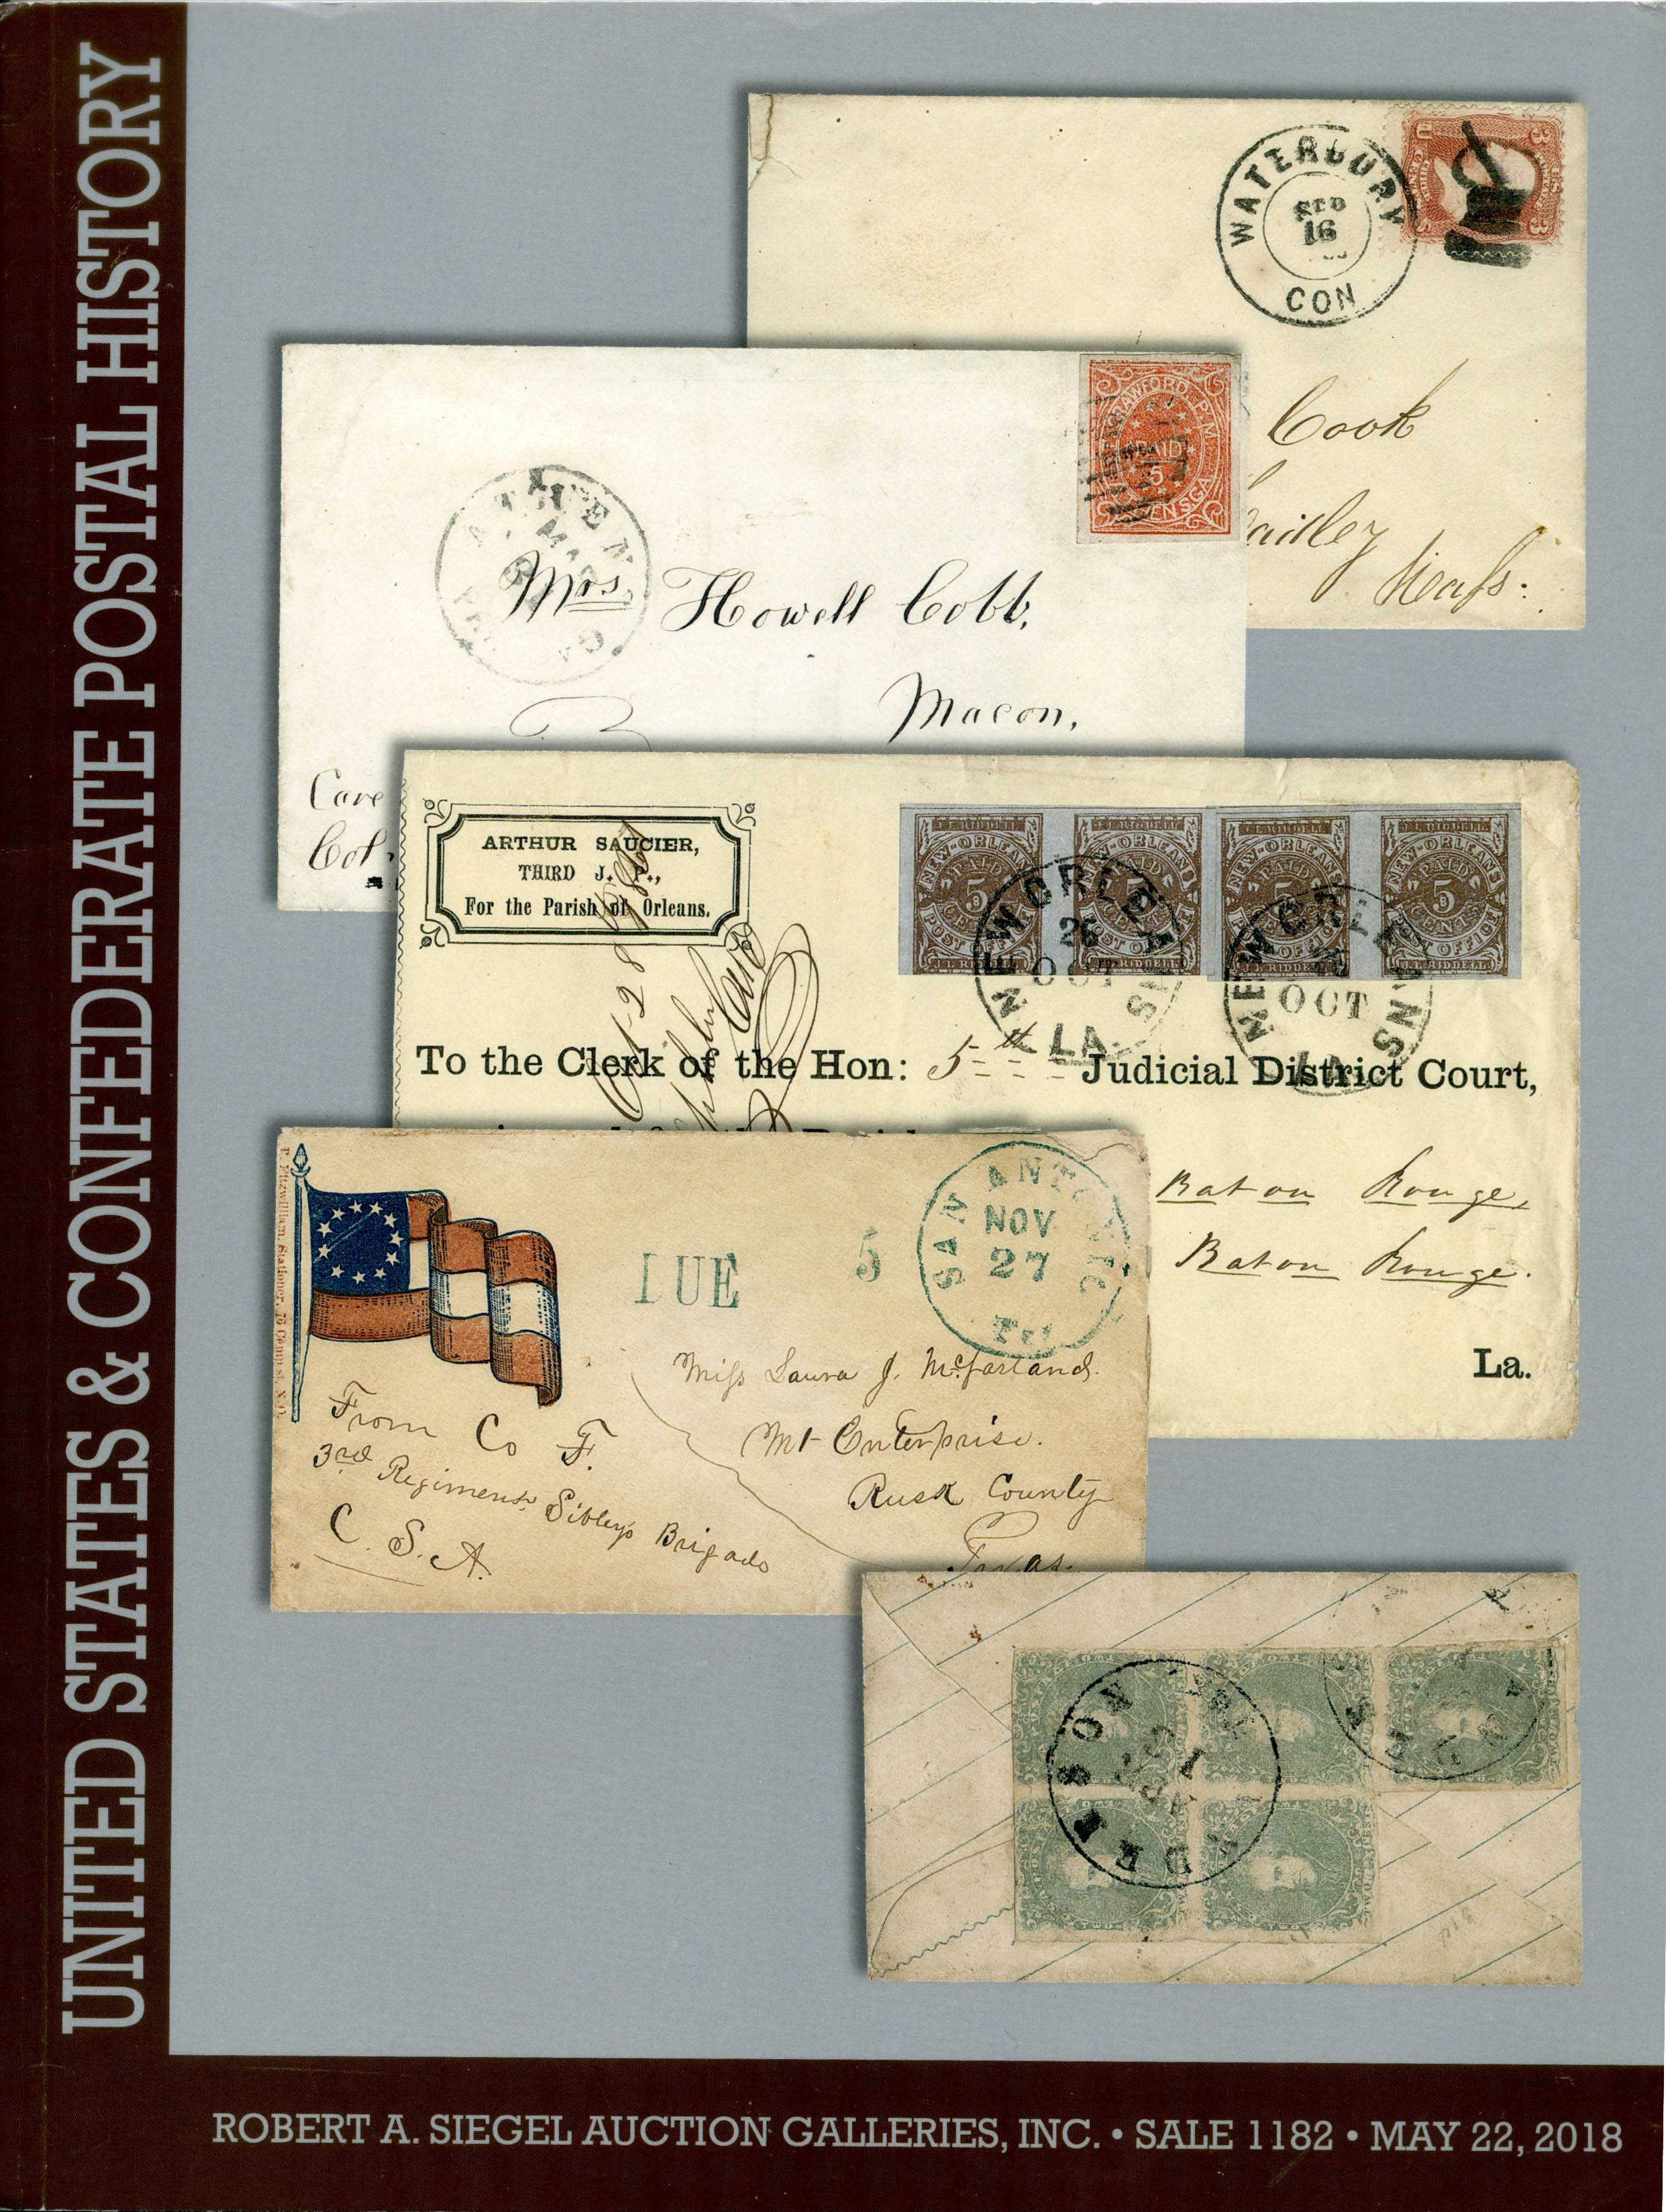 UNITED STATES & CONFEDERATE POSTAL HISTORY
WATERBURY
SEP
16
CON
3
3
Cook
Mass:
CRAWFORD P.M.
PAID
5
ATHENS
GA
Mrs. Howell Cobb,
Macon,
Care
Col.
ARTHUR SAUCIER,
THIRD J. P.,
For the Parish of Orleans.
NEW-ORLEANS
PAID
5
CENTS
POST OFFICE
J.L.RIDDELL
NEW ORLEANS
26
OCT
LA.
NEW ORLEANS
OCT
LA.
To the Clerk of the Hon: 5th Judicial District Court,
Baton Rouge,
Baton Rouge.
La.
T. Fitzwilliam, Stationer, 76 Camp st. N.O.
DUE 5
SAN ANTONIO
NOV
27
Miss Laura J. McFarland.
Mt Enterprise.
Rusk County
Texas.
From Co F.
3rd Regiment Sibley's Brigade
C. S. A.
ROBERT A. SIEGEL AUCTION GALLERIES, INC. • SALE 1182 • MAY 22, 2018